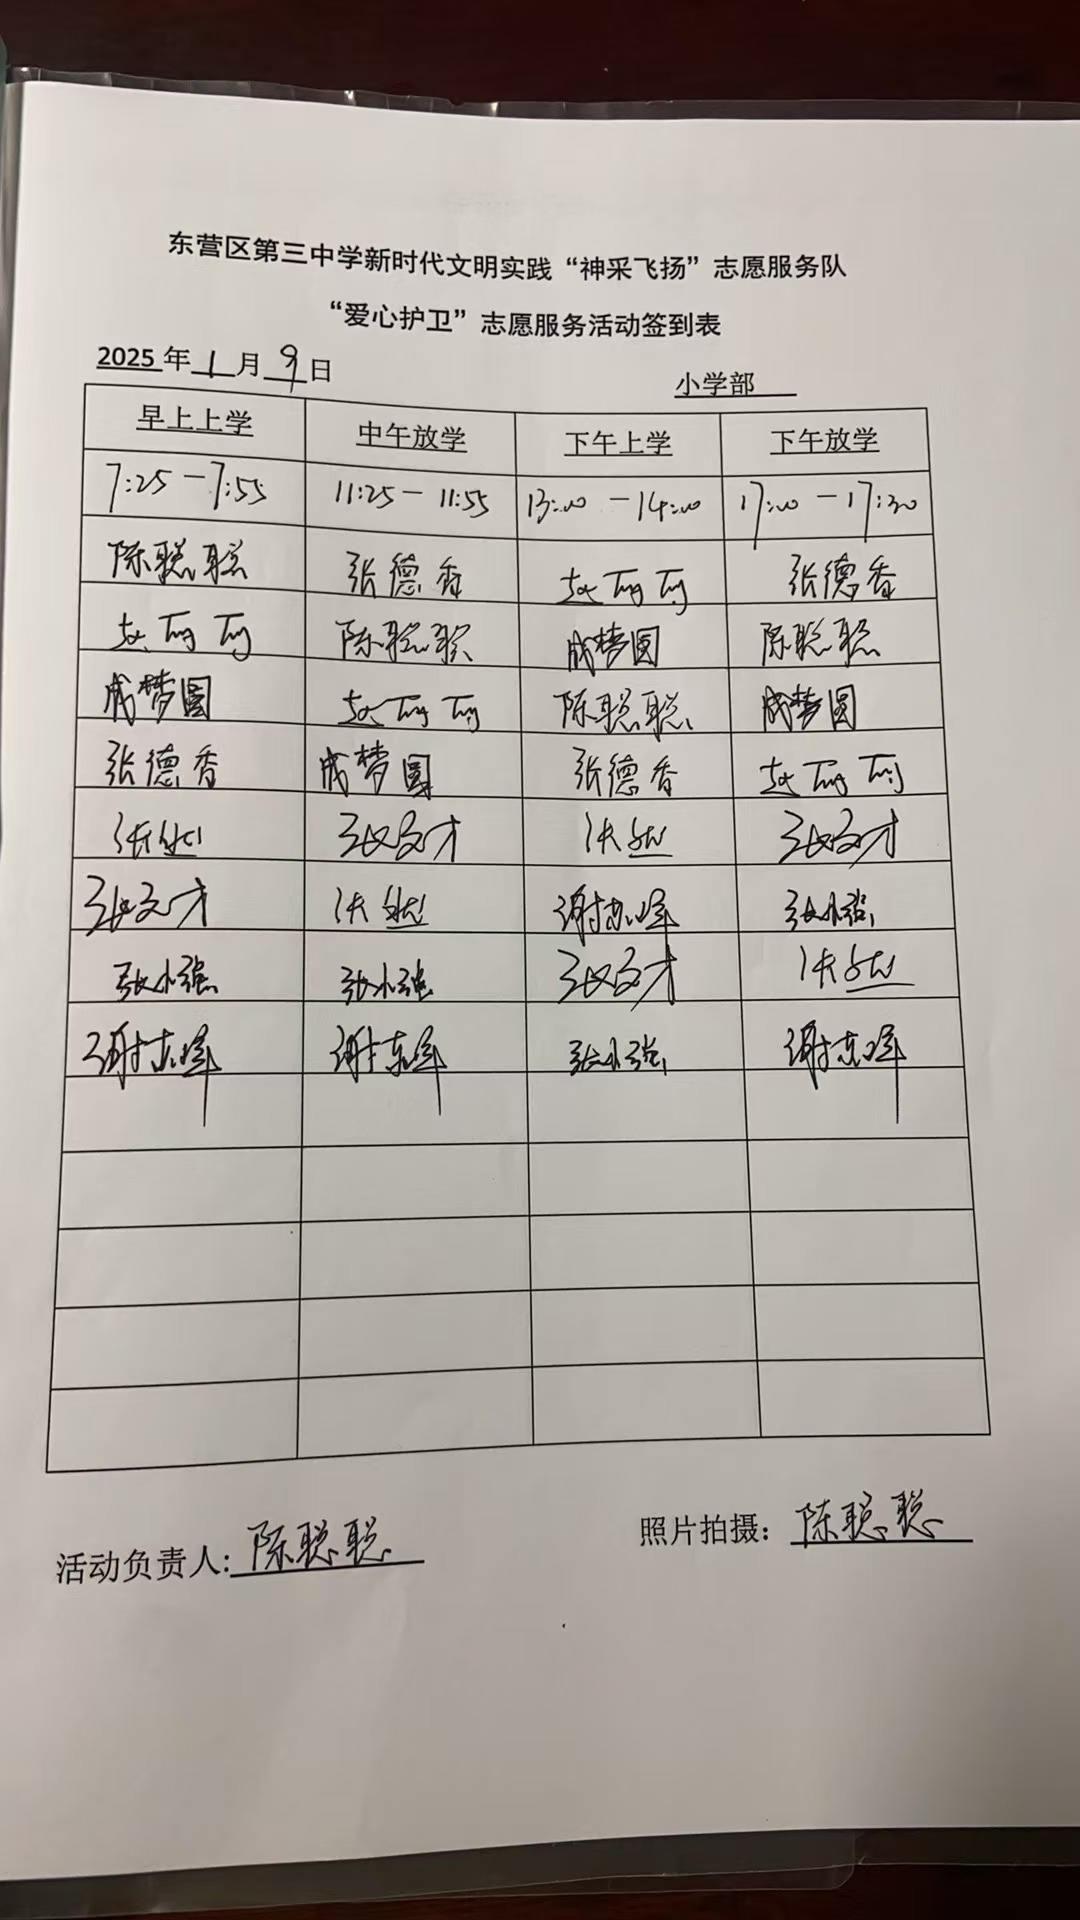 东营区第三中学新时代文明实践“神采飞扬”志愿服务队
“爱心护卫”志愿服务活动签到表
2025年1月9日 小学部
早上上学 中午放学 下午上学 下午放学
7:25-7:55 11:25-11:55 13:00-14:00 17:00-17:30
陈聪聪 张德香 张德香
陈聪聪 成梦圆 陈聪聪
成梦圆 陈聪聪 成梦圆
张德香 成梦圆 张德香
张文才 张文才
张文才 张小强
张小强 张小强 张文才
谢东峰 谢东峰 张小强 谢东峰
活动负责人:陈聪聪 照片拍摄:陈聪聪